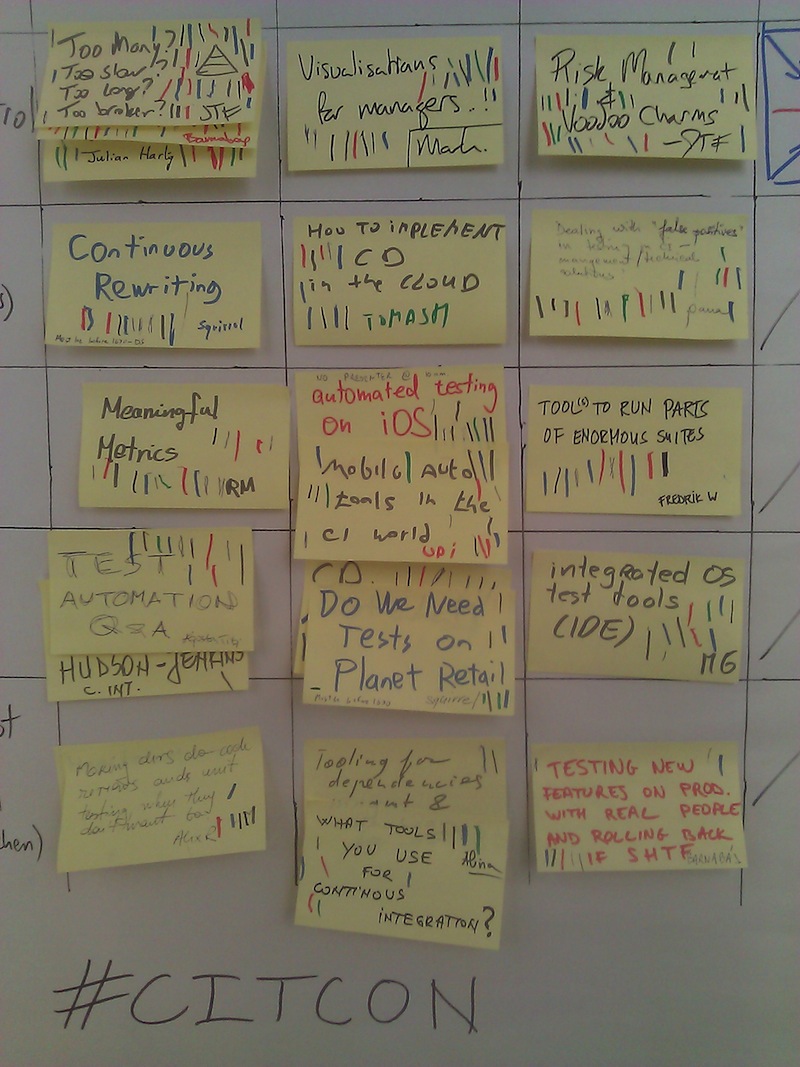 Too Many?
Too slow?
Too Long?
Too broken?
JTF
Barnabap
Julian Harty
Visualisations
for managers..!!
Mark.
Risk Management
&
Voodoo Charms
—JTF
Continuous
Rewriting
Squirrel
HOW TO IMPLEMENT
CD
in the CLOUD
TOMASM
Dealing with "false positives"
in
management/technical
solutions
Meaningful
Metrics
RM
NO PRESENTER @
automated testing
on iOS
Mobile Auto
tools in the
CI world
TOOL(S) TO RUN PARTS
OF ENORMOUS SUITES
FREDRIK W
TEST
AUTOMATION
Q&A
HUDSON-JENKINS
C. INT.
CD.
Do We Need
Tests on
Planet Retail
Squirrel
integrated OS
test tools
(IDE)
MG
Making devs do code
reviews and unit
testing when they
don't want to
Alex R
Tooling for
dependencies
&
WHAT TOOLS
YOU USE
Alina
FOR
CONTINOUS
INTEGRATION?
TESTING NEW
FEATURES ON PROD.
WITH REAL PEOPLE
AND ROLLING BACK
IF SHTF
BARNABÁS
hen)
#CITCON